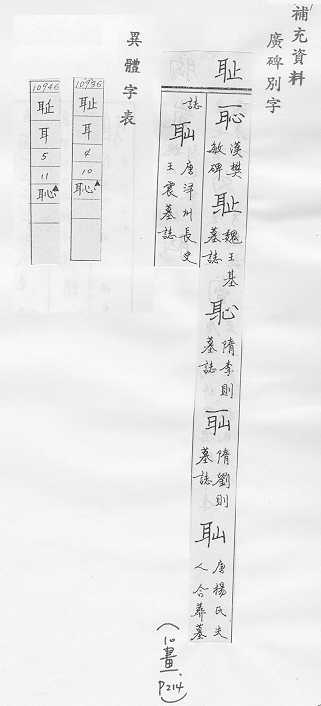 補充資料
廣碑別字
耻
恥 漢樊敏碑 耻 魏王基墓誌 恥 隋李則墓誌 隋劉則墓誌 唐楊氏夫人合葬墓
誌 唐洋州長史王震墓誌
(10畫. P214)
異體字表
10936
耻
耳
4
10
恥▲
10946
耳
5
11
恥▲